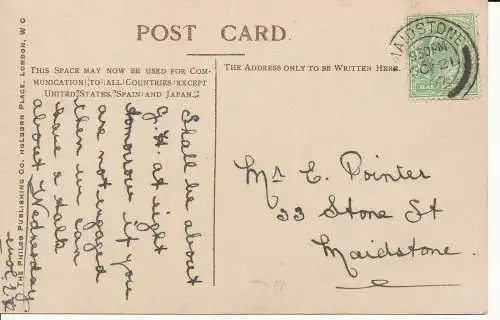 POST CARD.
THIS SPACE MAY NOW BE USED FOR COM-
MUNICATION TO ALL COUNTRIES EXCEPT
UNITED STATES, SPAIN AND JAPAN.
THE ADDRESS ONLY TO BE WRITTEN HERE.
MAIDSTONE
Shall be about
G.H. at eight
tomorrow if you
are not engaged
then we can
have a talk
about Wednesday
Mr E. Pointer
33 Stone St
Maidstone.
THE PHILCO PUBLISHING CO. HOLBORN PLACE, LONDON, W.C